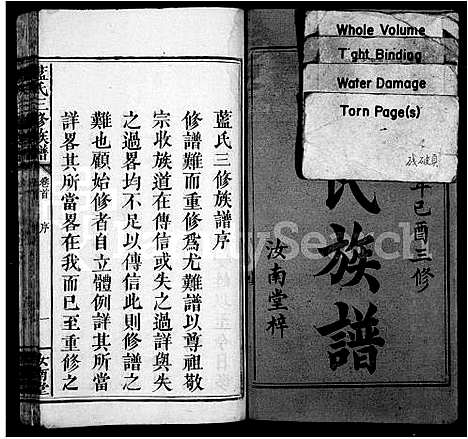 Whole Volume
Tight Binding
Water Damage
Torn Page(s)
年己酉三修
氏族譜
汝南堂梓
藍氏三修族譜序
修譜難而重修爲尤難譜以尊祖敬
宗收族道在傳信或失之過詳與失
之過畧均不足以傳信此則修譜之
難也顧始修者自立體例詳其所當
詳畧其所當畧在我而已至重修之
藍氏三修族譜 卷首 序 一 汝南堂